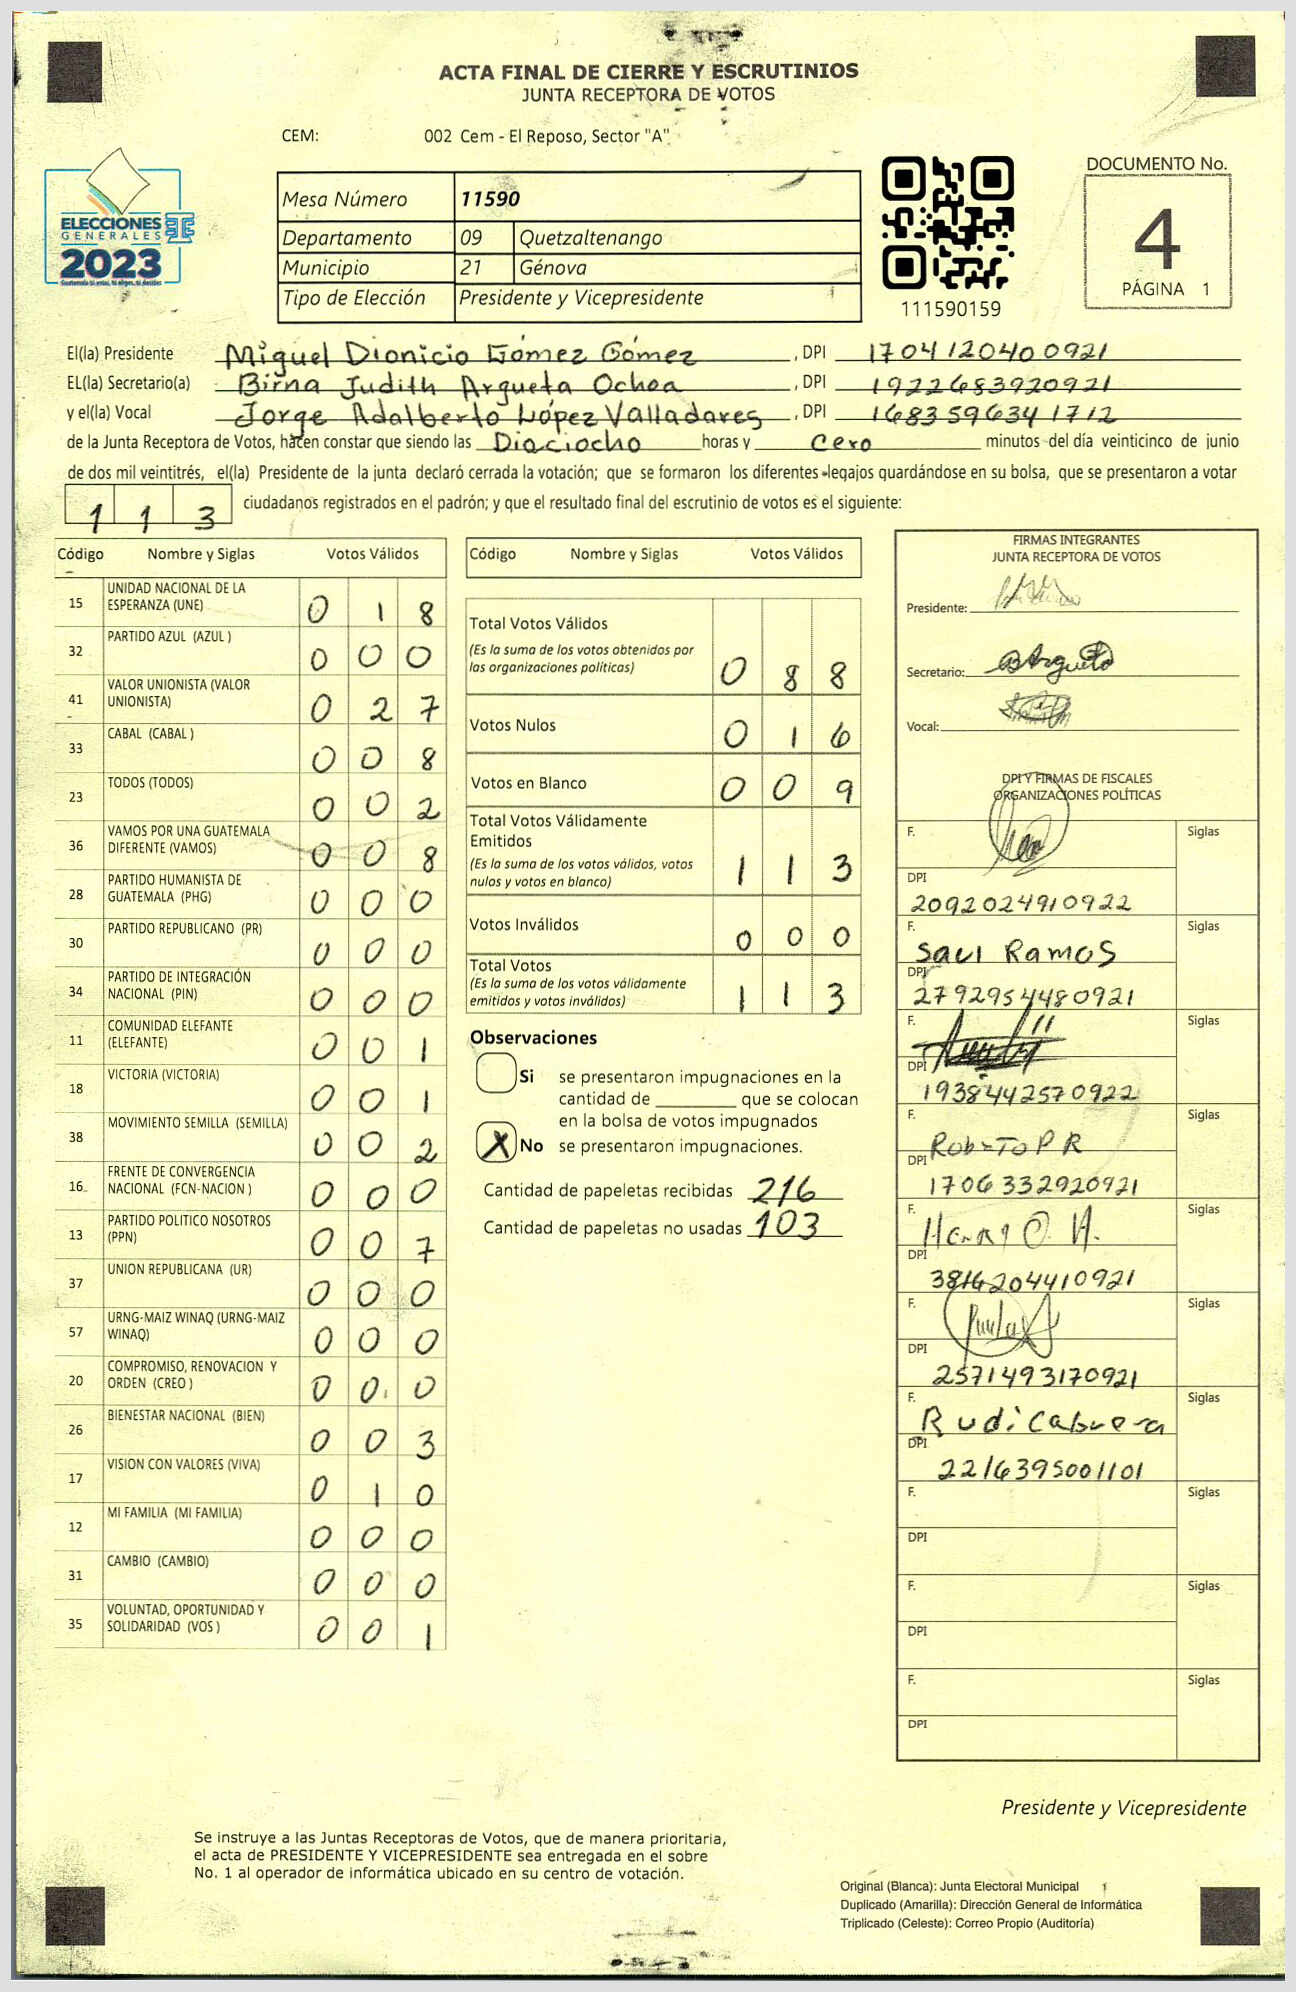 ACTA FINAL DE CIERRE Y ESCRUTINIOS
JUNTA RECEPTORA DE VOTOS
CEM: 002 Cem - El Reposo, Sector "A"
ELECCIONES
GENERALES
2023
Mesa Número 11590
Departamento 09 Quetzaltenango
Municipio 21 Génova
Tipo de Elección Presidente y Vicepresidente
111590159
DOCUMENTO No.
4
PÁGINA 1
El(la) Presidente Miguel Dionicio Gómez Gómez, DPI 1704120400921
EL(la) Secretario(a) Birna Judith Argueta Ochoa, DPI 1922683920921
y el(la) Vocal Jorge Adalberto López Valladares, DPI 1683596341712
de la Junta Receptora de Votos, hacen constar que siendo las Dieciocho horas y Cero minutos del día veinticinco de junio
de dos mil veintitrés, el(la) Presidente de la junta declaró cerrada la votación; que se formaron los diferentes legajos quardándose en su bolsa, que se presentaron a votar
113 ciudadanos registrados en el padrón; y que el resultado final del escrutinio de votos es el siguiente:
Código Nombre y Siglas Votos Válidos
15 UNIDAD NACIONAL DE LA
ESPERANZA (UNE) 0 1 8
32 PARTIDO AZUL (AZUL ) 0 0 0
41 VALOR UNIONISTA (VALOR
UNIONISTA) 0 2 7
33 CABAL (CABAL ) 0 0 8
23 TODOS (TODOS) 0 0 2
36 VAMOS POR UNA GUATEMALA
DIFERENTE (VAMOS) 0 0 8
28 PARTIDO HUMANISTA DE
GUATEMALA (PHG) 0 0 0
30 PARTIDO REPUBLICANO (PR) 0 0 0
34 PARTIDO DE INTEGRACIÓN
NACIONAL (PIN) 0 0 0
11 COMUNIDAD ELEFANTE
(ELEFANTE) 0 0 1
18 VICTORIA (VICTORIA) 0 0 1
38 MOVIMIENTO SEMILLA (SEMILLA) 0 0 2
16 FRENTE DE CONVERGENCIA
NACIONAL (FCN-NACION ) 0 0 0
13 PARTIDO POLITICO NOSOTROS
(PPN) 0 0 7
37 UNION REPUBLICANA (UR) 0 0 0
57 URNG-MAIZ WINAQ (URNG-MAIZ
WINAQ) 0 0 0
20 COMPROMISO, RENOVACION Y
ORDEN (CREO ) 0 0 0
26 BIENESTAR NACIONAL (BIEN) 0 0 3
17 VISION CON VALORES (VIVA) 0 1 0
12 MI FAMILIA (MI FAMILIA) 0 0 0
31 CAMBIO (CAMBIO) 0 0 0
35 VOLUNTAD, OPORTUNIDAD Y
SOLIDARIDAD (VOS ) 0 0 1
Código Nombre y Siglas Votos Válidos
Total Votos Válidos
(Es la suma de los votos obtenidos por
las organizaciones políticas) 0 8 8
Votos Nulos 0 1 6
Votos en Blanco 0 0 9
Total Votos Válidamente
Emitidos
(Es la suma de los votos válidos, votos
nulos y votos en blanco) 1 1 3
Votos Inválidos 0 0 0
Total Votos
(Es la suma de los votos válidamente
emitidos y votos inválidos) 1 1 3
Observaciones
Si se presentaron impugnaciones en la
cantidad de ________ que se colocan
en la bolsa de votos impugnados
X No se presentaron impugnaciones.
Cantidad de papeletas recibidas 216
Cantidad de papeletas no usadas 103
FIRMAS INTEGRANTES
JUNTA RECEPTORA DE VOTOS
Presidente:
Secretario: BArgueta
Vocal:
DPI Y FIRMAS DE FISCALES
ORGANIZACIONES POLÍTICAS
F. Siglas
DPI
2092024910922
F. Saul Ramos Siglas
DPI
2792954480921
F. Siglas
DPI
1938442570922
F. Siglas
Roberto P R
DPI
1706332920921
F. Siglas
DPI
3816204410921
F. Siglas
DPI
2571493170921
F. Siglas
Rudi Cabrera
DPI
2216395001101
F. Siglas
DPI
F. Siglas
DPI
F. Siglas
DPI
Presidente y Vicepresidente
Se instruye a las Juntas Receptoras de Votos, que de manera prioritaria,
el acta de PRESIDENTE Y VICEPRESIDENTE sea entregada en el sobre
No. 1 al operador de informática ubicado en su centro de votación.
Original (Blanca): Junta Electoral Municipal
Duplicado (Amarilla): Dirección General de Informática
Triplicado (Celeste): Correo Propio (Auditoría)